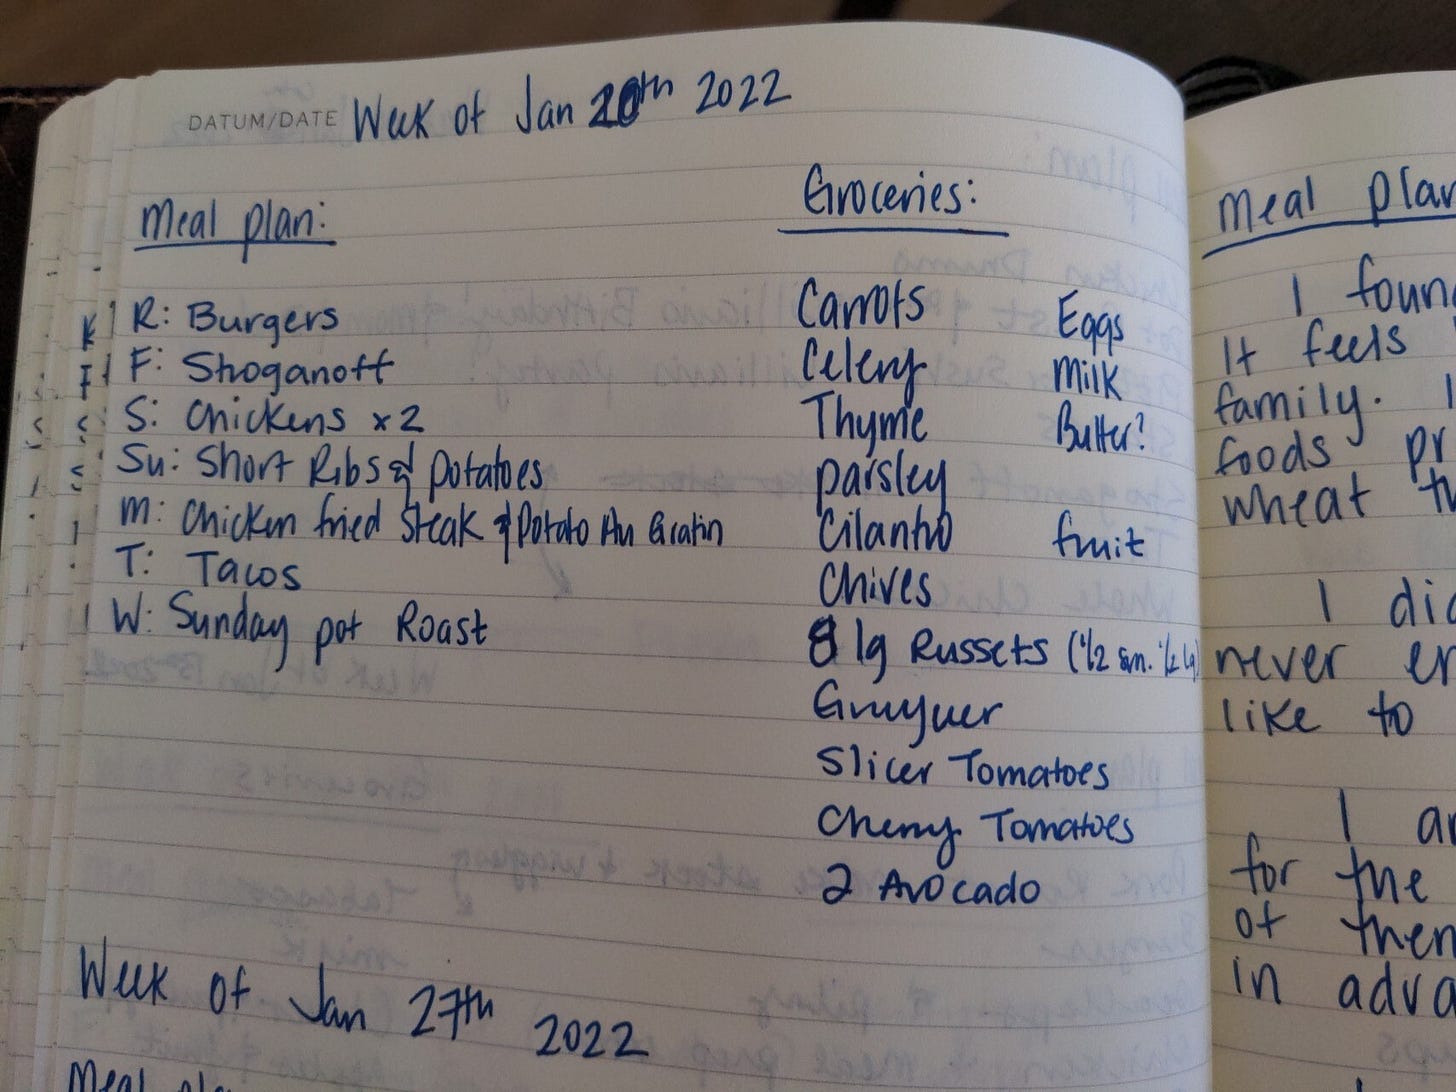 DATUM/DATE Week of Jan 20th 2022
Meal plan:
R: Burgers
F: Stroganoff
S: Chickens x2
Su: Short Ribs & potatoes
M: Chicken fried Steak & Potato Au Gratin
T: Tacos
W: Sunday pot Roast
Groceries:
Carrots
Celery
Thyme
parsley
Cilantro
Chives
8 lg Russets (1/2 sm. 1/2 lg)
Gruyuer
Slicer Tomatoes
Cherry Tomatoes
2 Avocado
Eggs
Milk
Butter?
fruit
Week of Jan 27th 2022
Meal
Meal plan
I foun
It feels
family. I
foods pr
wheat
I did
never
like to
I
for the
of them
in adva